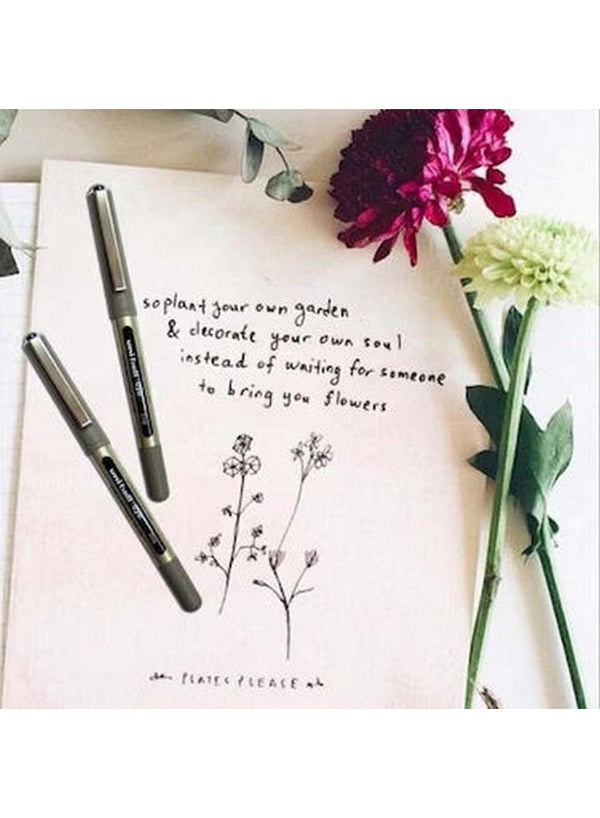 so plant your own garden
& decorate your own soul
instead of waiting for someone
to bring you flowers
PLATES PLEASE
uni-ball eye
uni-ball eye